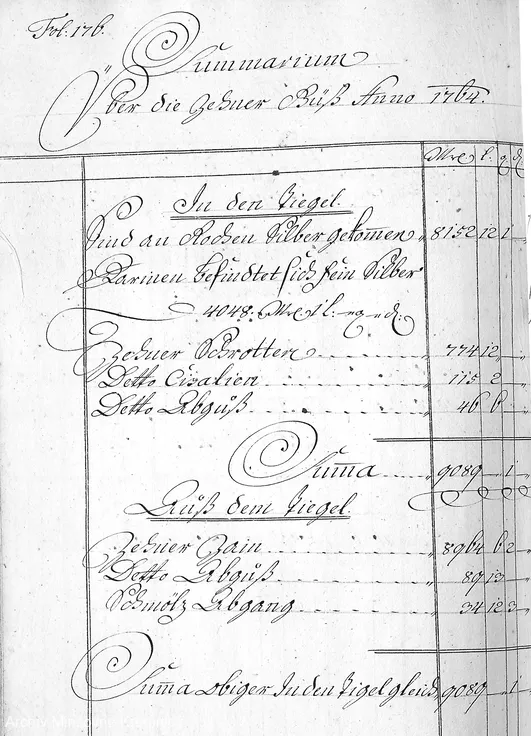 Fol: 176.
Summarium
Über die Zehner Güß Anno 1764.
Mrc l. q d
In den Tiegel.
Sind an Rochen Silber gekomen " 8152 12 1 –
Darinen befindtet sich fein Silber
4048. Mrc 1 l. – q – d:
Zehner Schrotten " 774 12 – –
Detto Cisalien " 115 2 – –
Detto Abguß " 46 6 – –
Suma " 9089 – 1 –
Auß dem Tiegel.
Zehner Zain " 8964 6 2 –
Detto Abguß " 89 13 – –
Schmölz Abgang " 34 12 3 –
Suma obiger In den Tigel gleich 9089 – 1 –
Archiv